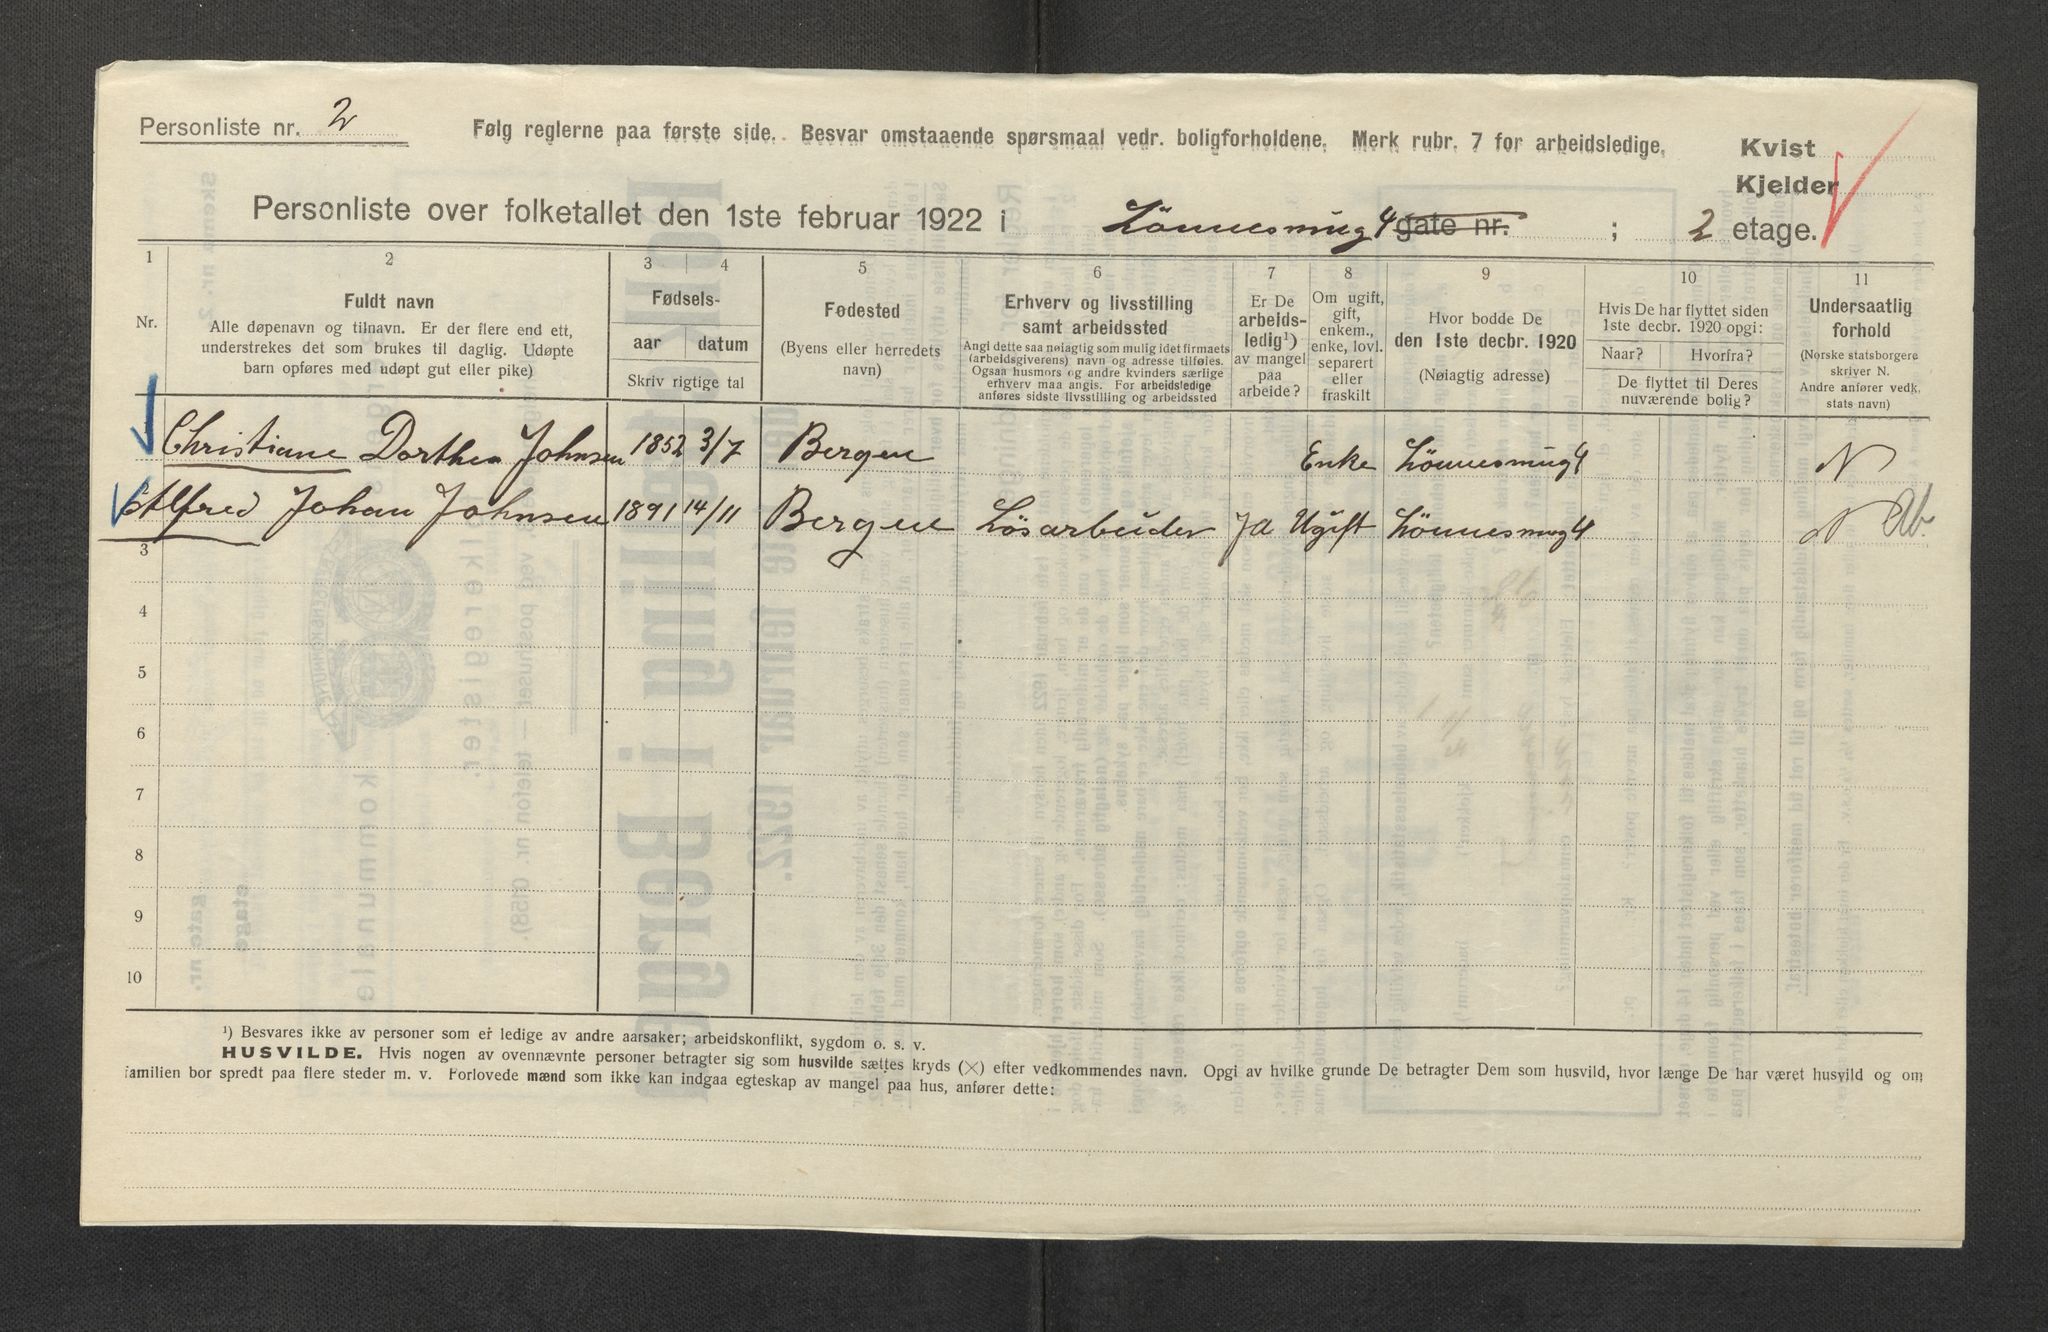 Personliste nr. 2
Følg reglerne paa første side. Besvar omstaaende spørsmaal vedr. boligforholdene. Merk rubr. 7 for arbeidsledige.
Kvist
Kjelder
Personliste over folketallet den 1ste februar 1922 i Lönnesmug 4 gate nr. ; 2 etage.
1 2 3 4 5 6 7 8 9 10 11
Nr.
Fuldt navn
Alle døpenavn og tilnavn. Er der flere end ett,
understrekes det som brukes til daglig. Udøpte
barn opføres med udøpt gut eller pike)
Fødsels-
aar datum
Skriv rigtige tal
Fødested
(Byens eller herredets
navn)
Erhverv og livsstilling
samt arbeidssted
Angi dette saa nøiagtig som mulig idet firmaets
(arbeidsgiverens) navn og adresse tilføies.
Ogsaa husmors og andre kvinders særlige
erhverv maa angis. For arbeidsledige
anføres sidste livsstilling og arbeidssted
Er De
arbeids-
ledig¹)
av mangel
paa
arbeide?
Om ugift,
gift,
enkem.,
enke, lovl.
separert
eller
fraskilt
Hvor bodde De
den 1ste decbr. 1920
(Nøiagtig adresse)
Hvis De har flyttet siden
1ste decbr. 1920 opgi:
Naar? Hvorfra?
De flyttet til Deres
nuværende bolig?
Undersaatlig
forhold
(Norske statsborgere
skriver N.
Andre anfører vedk.
stats navn)
Christiane Dorthea Johnsen 1852 3/7 Bergen Enke Lönnesmug 4 N
Alfred Johan Johnsen 1891 14/11 Bergen Lösarbeider Ja Ugift Lönnesmug 4 N Ab.
3
4
5
6
7
8
9
10
¹) Besvares ikke av personer som er ledige av andre aarsaker; arbeidskonflikt, sygdom o. s. v.
HUSVILDE. Hvis nogen av ovennævnte personer betragter sig som husvilde sættes kryds (×) efter vedkommendes navn. Opgi av hvilke grunde De betragter Dem som husvild, hvor længe De har været husvild og om
familien bor spredt paa flere steder m. v. Forlovede mænd som ikke kan indgaa egteskap av mangel paa hus, anfører dette: